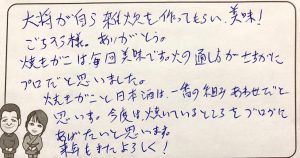 大将が自ら雑炊を作ってもらい、美味!
ごちそう様。ありがとう。
焼きがこは毎回美味でお火の通し方がさすがに
プロだと思いました。
焼きがこと日本酒は一番の組みあわせだと
思います。今度は焼いているところをブログに
あげたいと思います。
来年もまたよろしく!